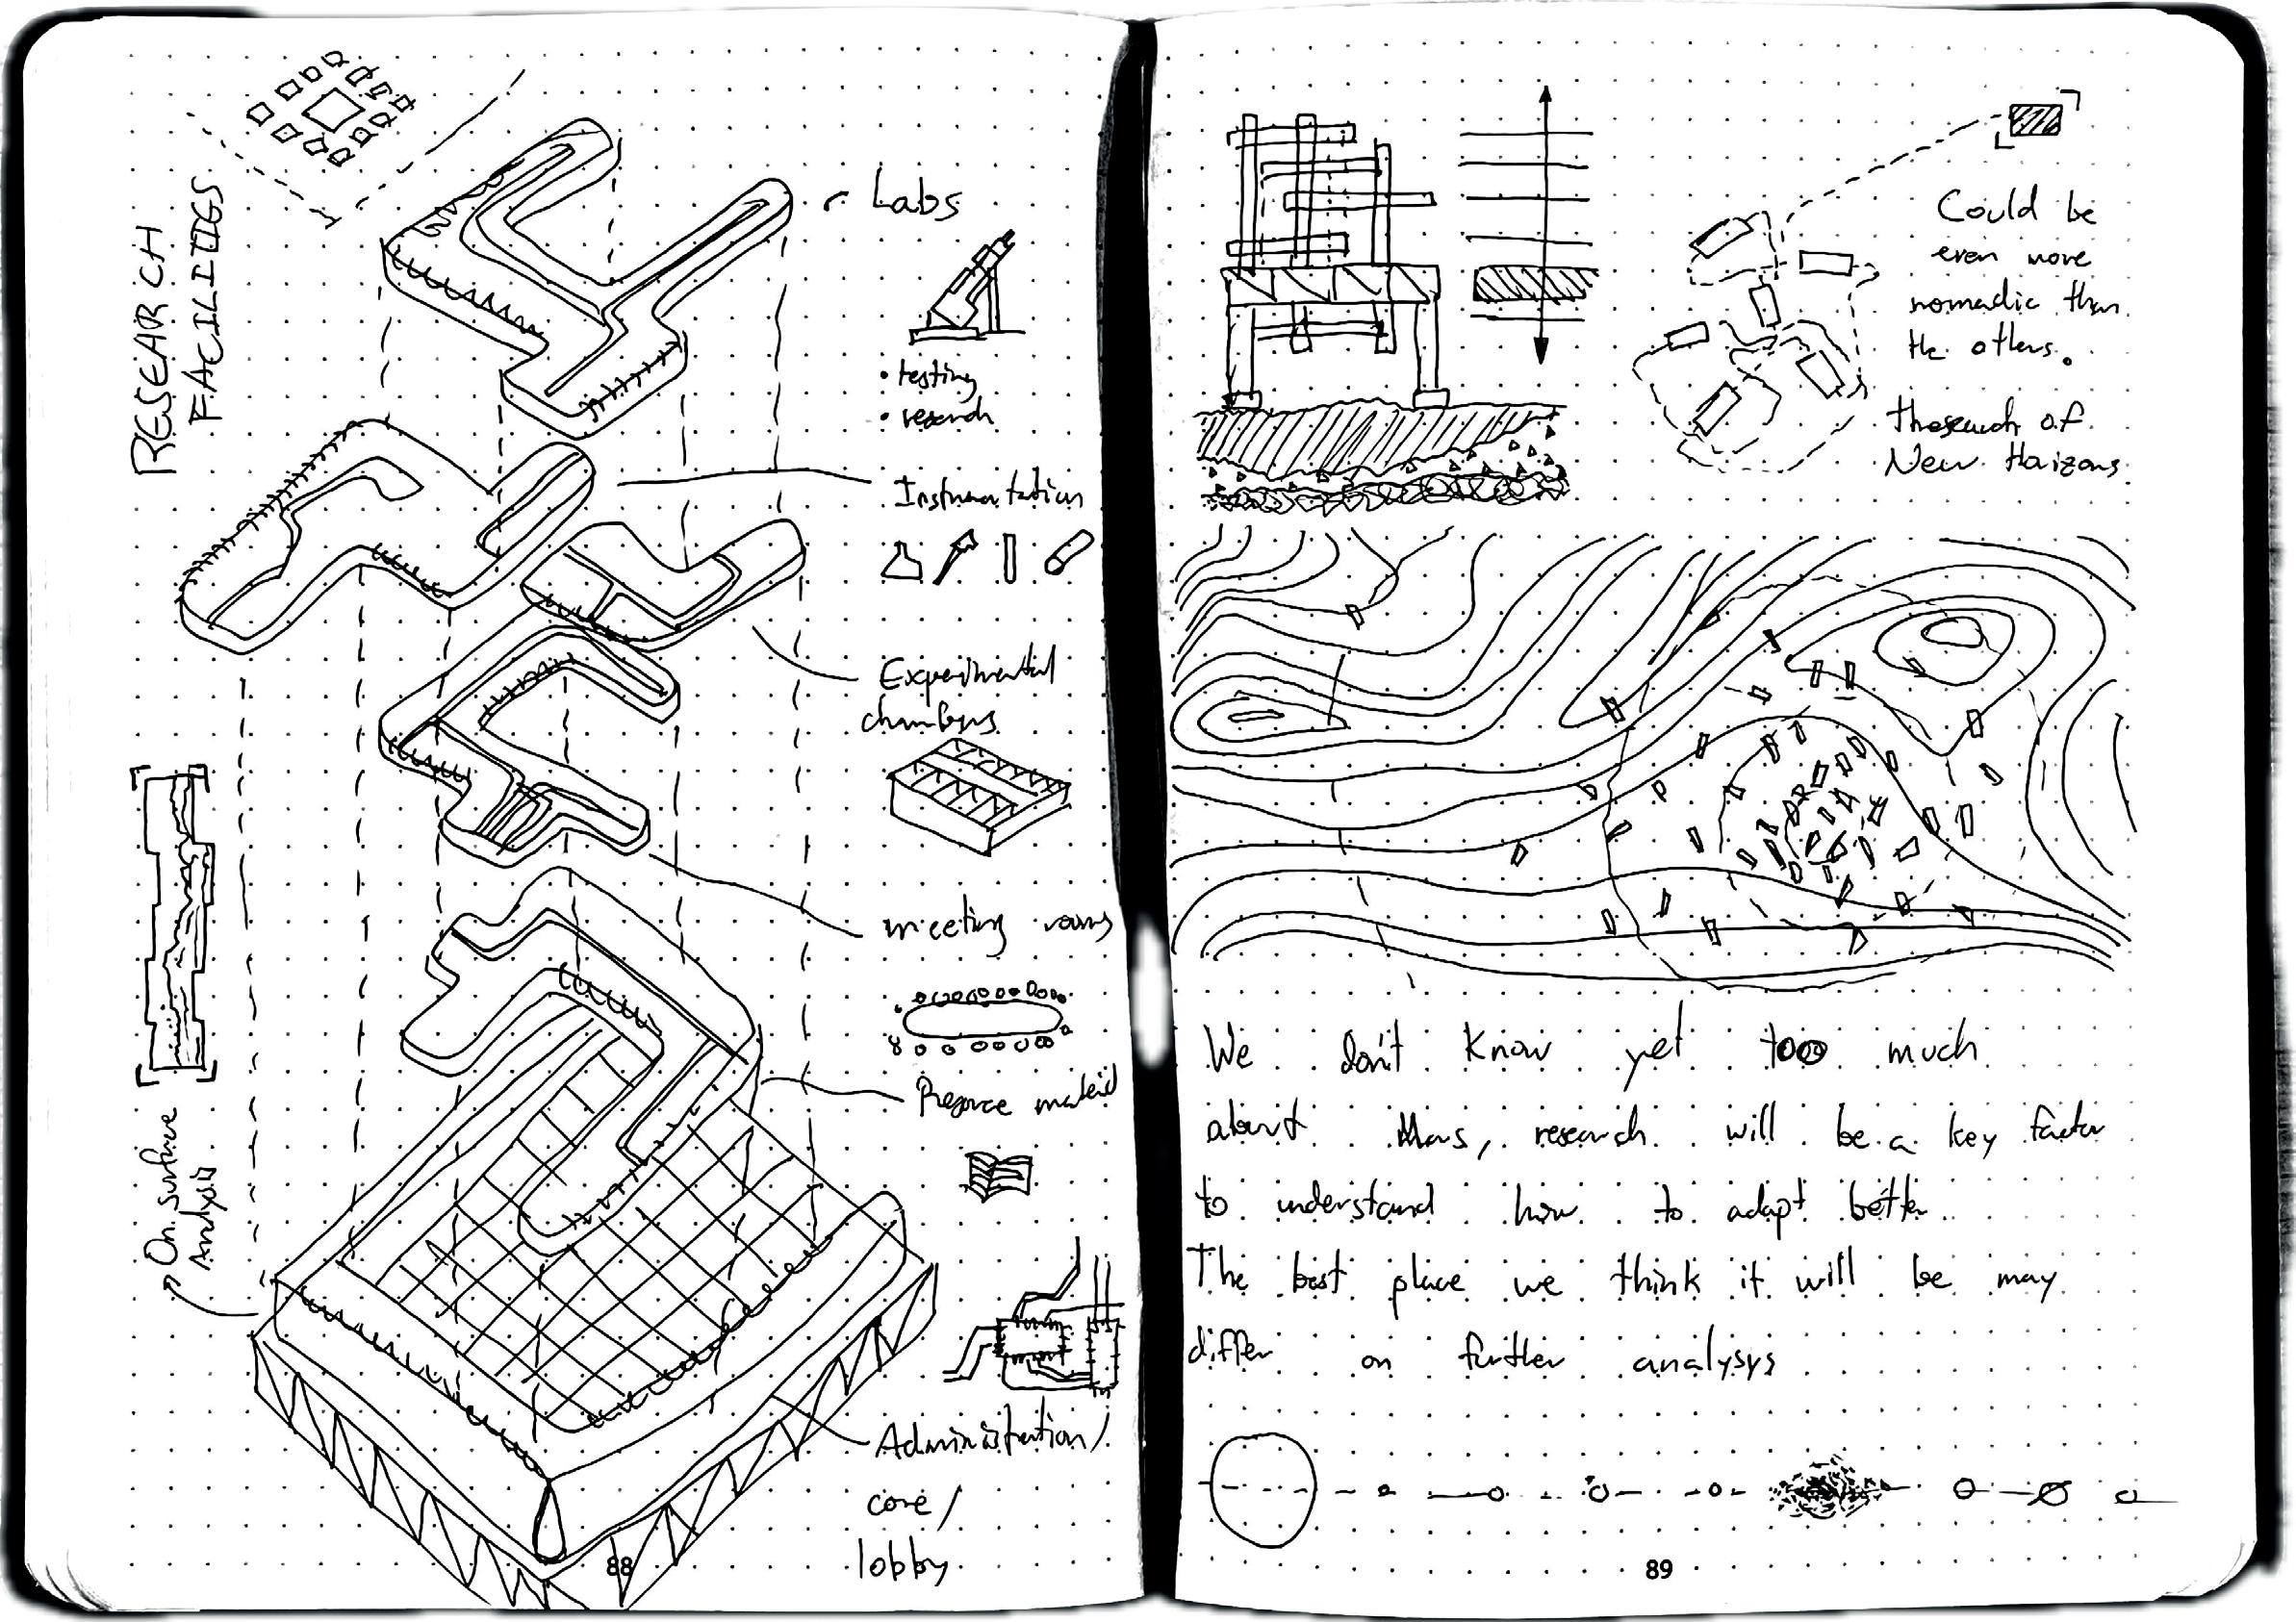 RESEARCH
FACILITIES
Labs
• testing
• research
Instrumentation
Experimental
chambers
meeting rooms
material
On surface
Analysis
Administration/
core/
lobby
88
Could be
even more
nomadic than
the others.
of
New Horizons
We don't know yet too much
about Mars, research will be a key factor
to understand how to adapt better
The best place we think it will be may
differ on further analysys
89